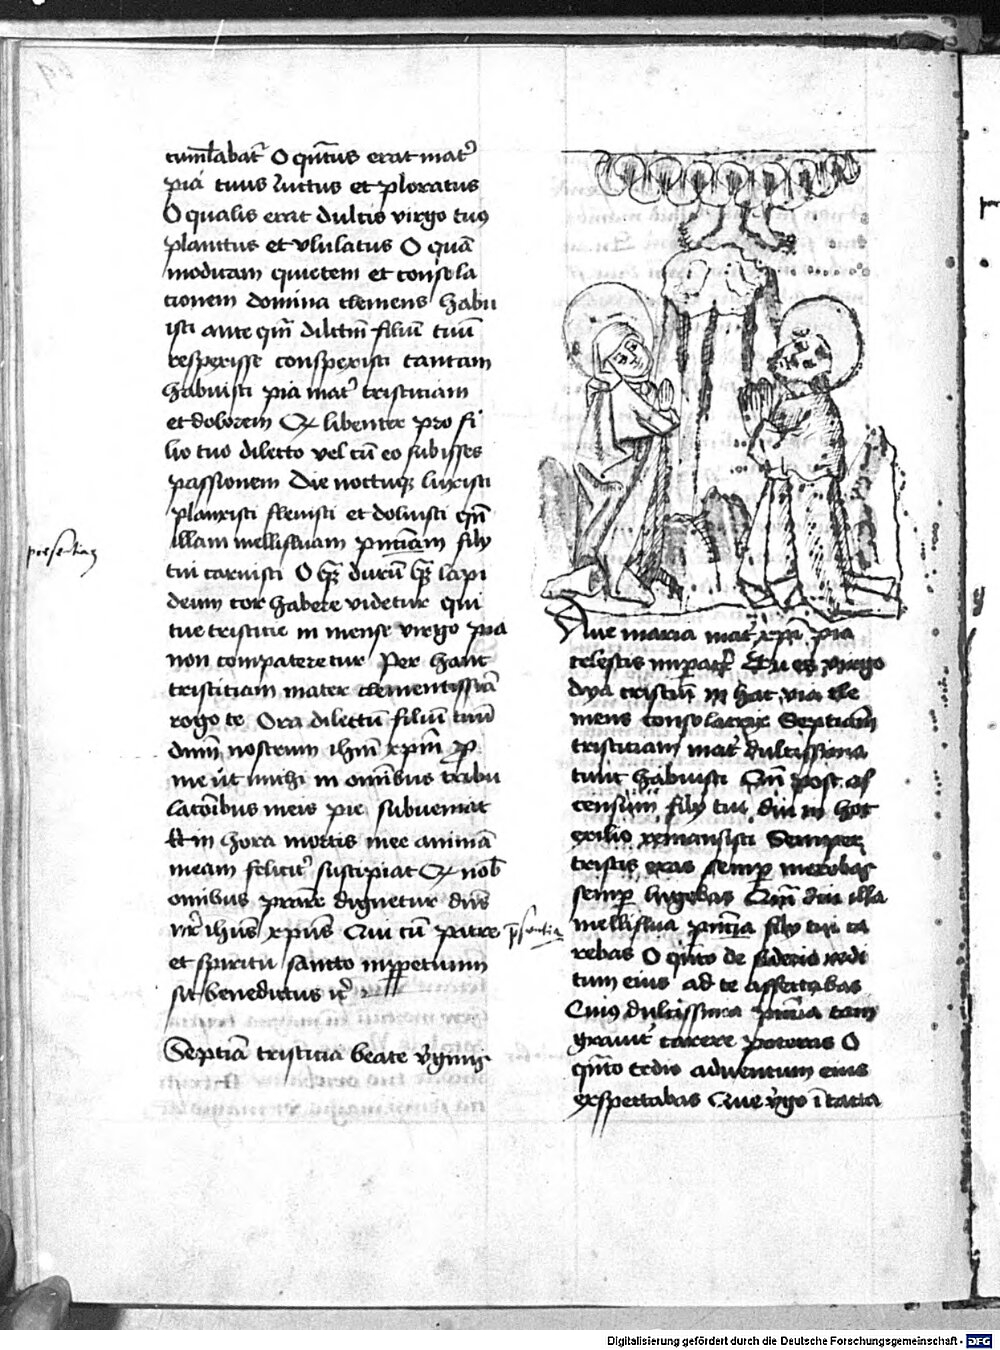 cumlabat᷑ O qn̄tus erat mat᷑
pia tuus luctus et ploratus
O qualis erat dulcis virgo tuꝰ
planctus et vlulatus O quā
modicam quietem et consola
cionem domina clemens habu
isti ante qm̄ dilctm̄ filiū tuū
resperisse conspexisti tantam
habuisti pia mat᷑ tristiciam
et dolorem Qꝛ libenter pro fi
lio tuo dilecto vel cū eo subisses
passionem Die noctuqꝫ luxisti
planxisti fleuisti et doluisti qn̄
illam mellifluam pn̄ciam filij
tui caruisti O qꝫ durū qꝫ lapi
deum cor habere videtur qui
tue tristicie in mense virgo pia
non compateretur Per hanc
tristiciam mater clementissīa
rogo te Ora dilectū filiū tuū
dnm̄ nostrum ihm̄ xpm̄ ꝓ
me vt michi in omībus tribu
lacōibus meis pie subueniat
Et in hora mortis mee animā
meam felicit᷑ suscipiat Qꝛ nob᷑
omibus prare dignetur dn̄s
nr̄ ihūs xpūs Qui cū patre
et spiritu sancto inꝑpetuum
sit benedictus ic᷑
Septīa tristicia beate v᷑ginis
presentiam
presentia
Aue maria mat᷑ xp̄i pia
celestis impat᷑x Tu es virgo
dya tristiū in hac via cle
mens consolatrix Septimā
tristiciam mat᷑ dulcissima
tunc habuisti Qn̄ post as
censum filij tui diu in hoc
exilio remansisti Semper
tristis eras semꝑ merebas
semꝑ lugebas Qn̄ diu illa
melliflua pn̄cia filij tui ca
rebas O qn̄to desiderio redi
tum eius ad te affectabas
Cuiꝰ dulcissima pn̄cia tam
grauit᷑ carere poteras O
qn̄to tedio aduentum eius
exspectabas Aue v᷑go ītacta
Digitalisierung gefördert durch die Deutsche Forschungsgemeinschaft - DFG